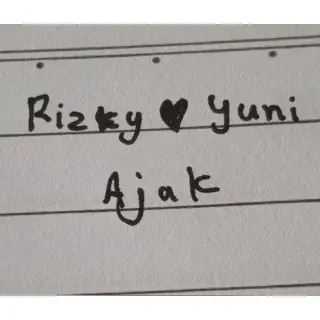 Rizky ♥ Yuni
Ajak